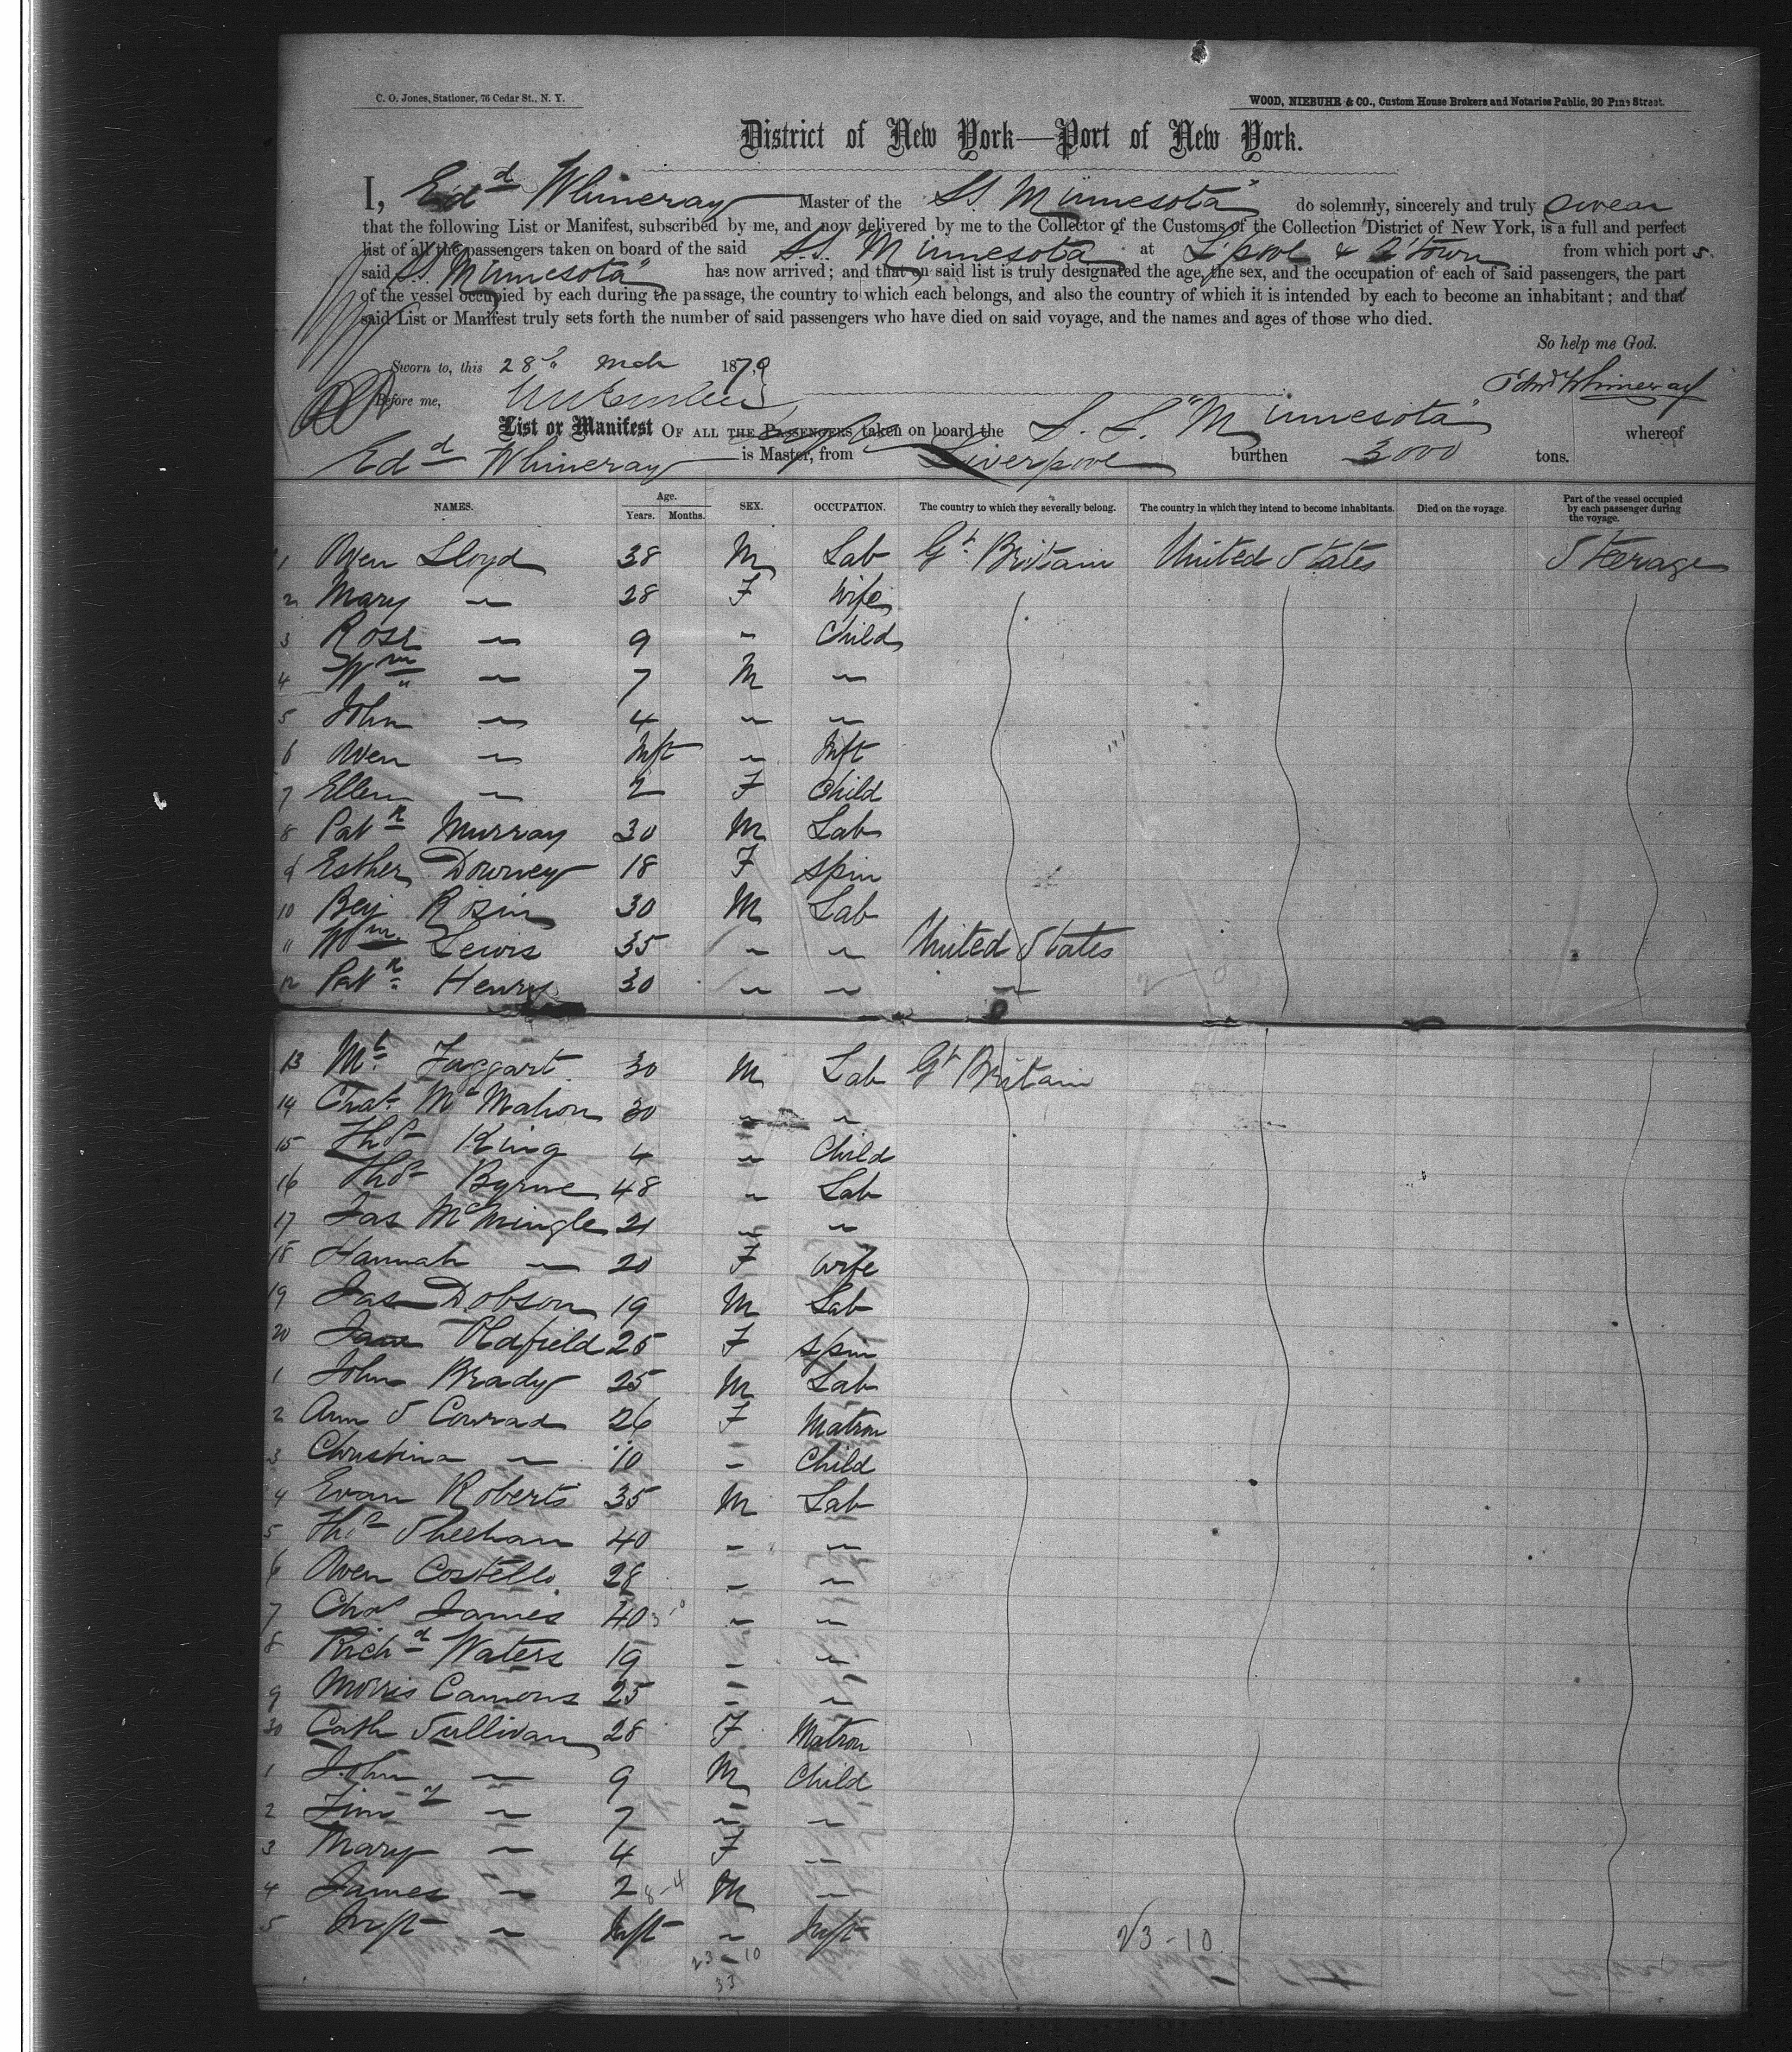 C. O. Jones, Stationer, 76 Cedar St., N. Y.
WOOD, NIEBUHR & CO., Custom House Brokers and Notaries Public, 20 Pine Street.
District of New York—Port of New York.
I, Edd Whineray Master of the "SS. Minnesota" do solemnly, sincerely and truly swear
that the following List or Manifest, subscribed by me, and now delivered by me to the Collector of the Customs of the Collection District of New York, is a full and perfect
list of all the passengers taken on board of the said S.S. Minnesota at L'pool & Q'town from which port s.
said "SS. Minnesota" has now arrived; and that on said list is truly designated the age, the sex, and the occupation of each of said passengers, the part
of the vessel occupied by each during the passage, the country to which each belongs, and also the country of which it is intended by each to become an inhabitant; and that
said List or Manifest truly sets forth the number of said passengers who have died on said voyage, and the names and ages of those who died.
So help me God.
Sworn to, this 28th Mch 1879
Edwd Whineray
Before me,
List or Manifest OF ALL THE PASSENGERS taken on board the S. S. "Minnesota" whereof
Edd Whineray is Master, from Liverpool burthen 3000 tons.
NAMES. Age. Years. Months. SEX. OCCUPATION. The country to which they severally belong. The country in which they intend to become inhabitants. Died on the voyage. Part of the vessel occupied by each passenger during the voyage.
1 Owen Lloyd 38 M Lab Gt. Britain United States Steerage
2 Mary " 28 F Wife
3 Rose " 9 " Child
4 Wm " 7 M "
5 John " 4 " "
6 Owen " Inft " Inft
7 Ellen " 2 F Child
8 Patk Murray 30 M Lab
9 Esther Downey 18 F Spin
10 Benj Rosin 30 M Lab
11 Wm. Lewis 35 " " United States
12 Patk Henry 30 " " "
13 Mt. Taggart 30 M Lab Gt Britain
14 Chas. McMahon 30 " "
15 Thos King 4 " Child
16 Thos Byrne 48 " Lab
17 Jas McMingle 21 " "
18 Hannah " 20 F Wife
19 Jas Dobson 19 M Lab
20 Jane Oldfield 25 F Spin
1 John Brady 25 M Lab
2 Ann S Conrad 26 F Matron
3 Christina " 10 " Child
4 Evan Roberts 35 M Lab
5 Thos Sheehan 40 " "
6 Owen Costello 28 " "
7 Chas James 40 " "
8 Richd Waters 19 " "
9 Morris Camons 25 " "
30 Cath Sullivan 28 F Matron
1 John " 9 M Child
2 Timy " 7 " "
3 Mary " 4 F "
4 James " 2 8-4 M "
5 Inft " Inft " Inft
23-10
23-10
33